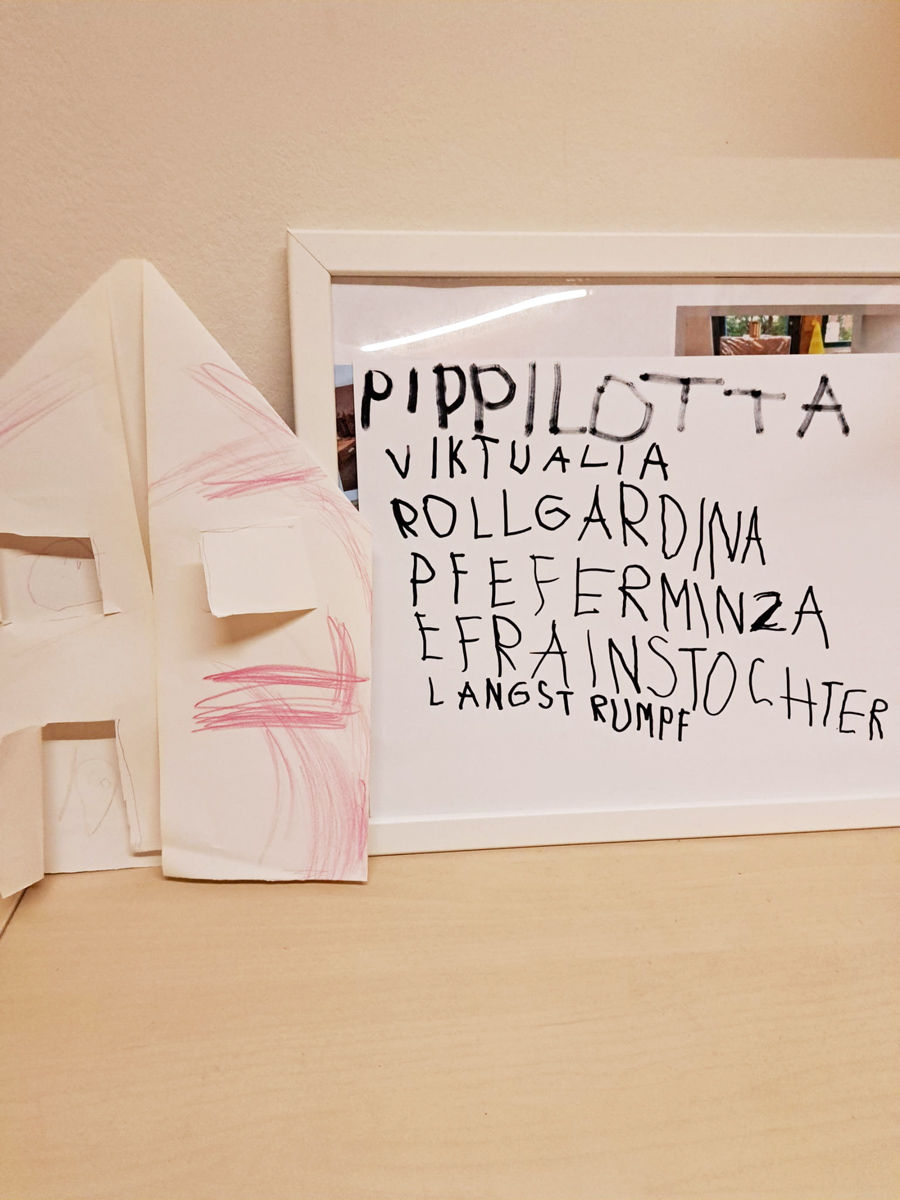 PIPPILOTTA
VIKTUALIA
ROLLGARDINA
PFEFERMINZA
EFRAINSTOCHTER
LANGSTRUMPF